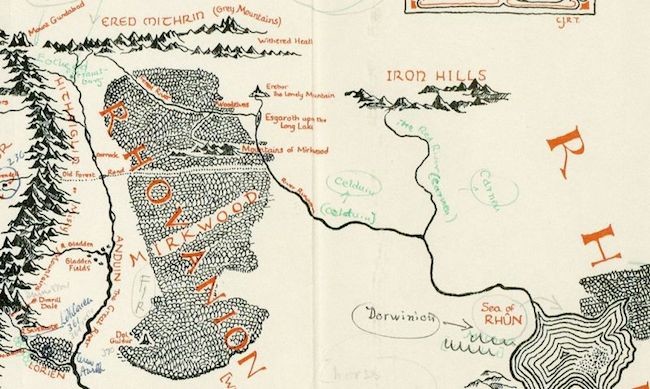 Mount Gundabad
ERED MITHRIN (Grey Mountains)
C.J.R.T.
Withered Heath
Forest River
Erebor
The Lonely Mountain
IRON HILLS
Woodelves
Esgaroth upon the
Long Lake
Mountains of Mirkwood
Carrock
Old Forest Road
River Running
The Red River (Carnen)
Celduin
(Celduin)
Carnen
RHOVANION
MIRKWOOD
R. Gladden
Gladden
Fields
ANDUIN the Great River
FIR
Dimrill
Dale
Dorwinion
Sea of
RHÛN
Dol
Guldur
LORIEN
R H